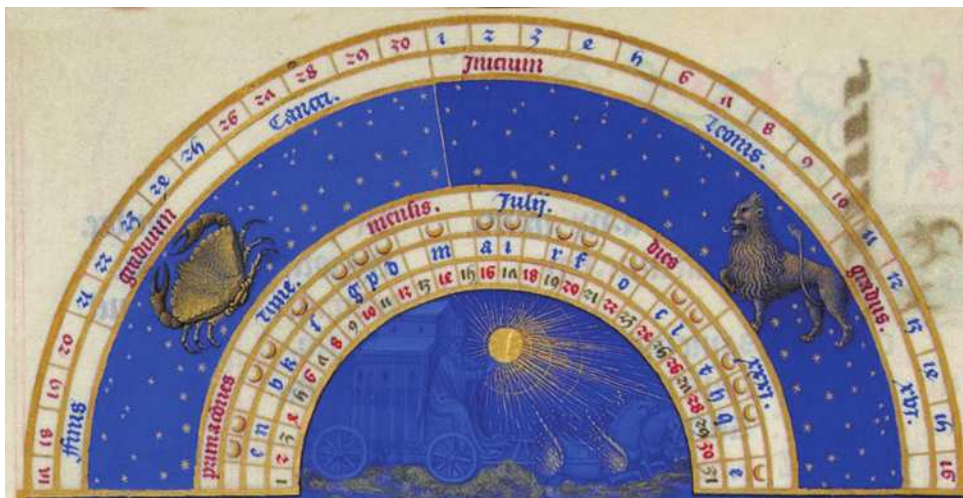 17 18 19 20 21 22 23 24 25 26 27 28 29 30 1 2 3 4 5 6 7 8 9 10 11 12 13 14 15 16
ffinis graduum Cancri. Inicium Leonis. gradus. xvi.
primaciones lune. mensis. Julij. dies xxxi.
b k g p d m a i r f o c l t h q
1 2 3 4 5 6 7 8 9 10 11 12 13 14 15 16 17 18 19 20 21 22 23 24 25 26 27 28 29 30 31